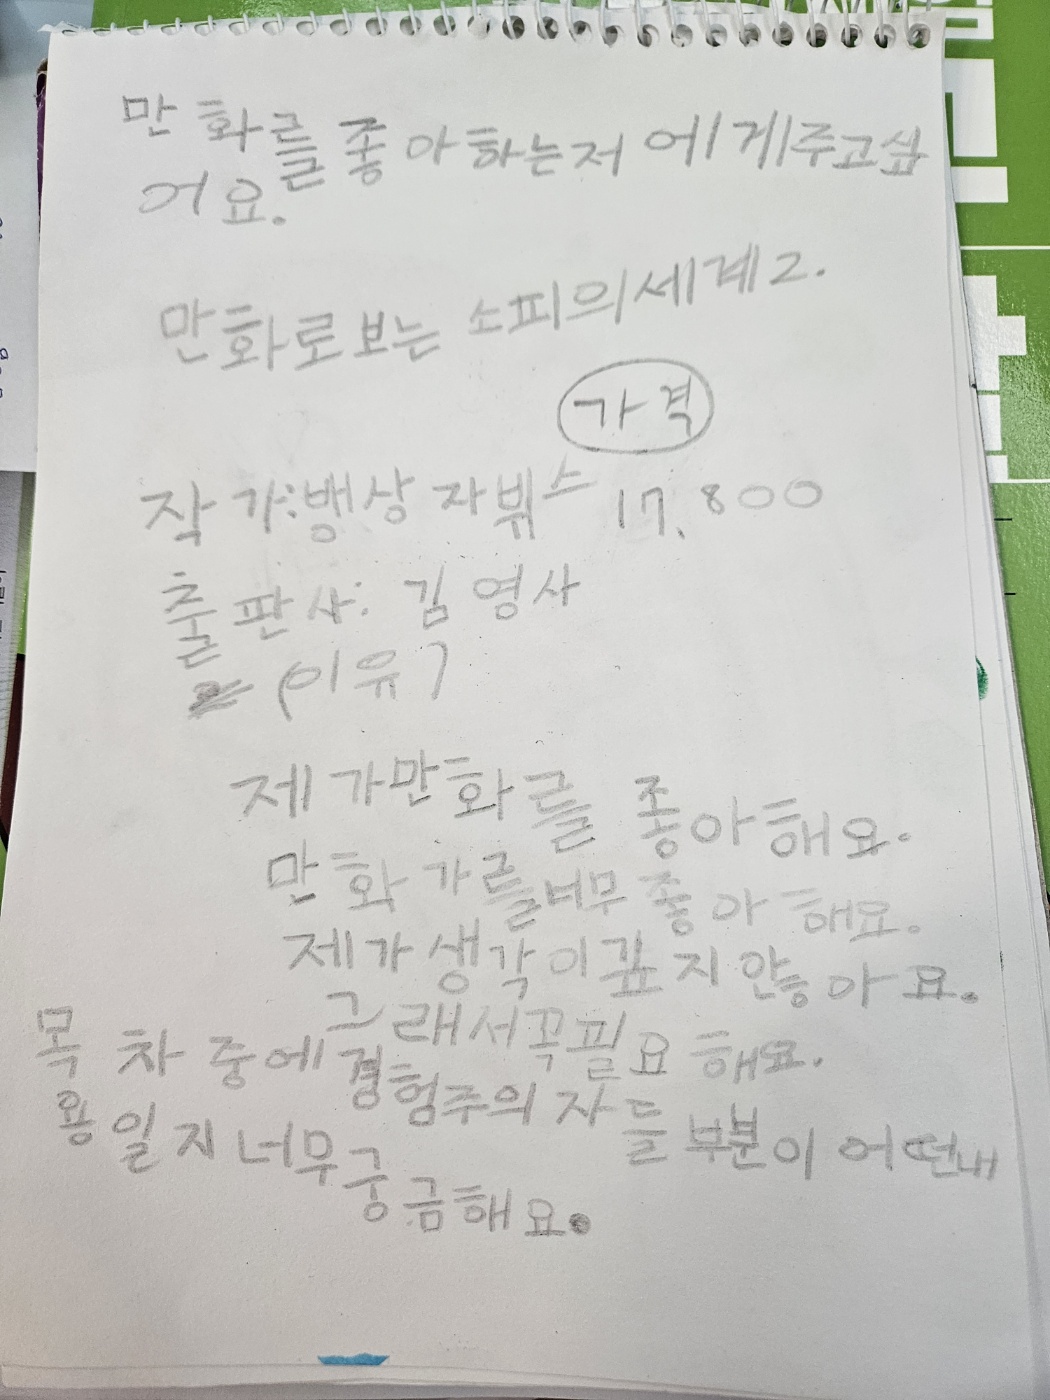 만화를좋아하는저에게주고싶
어요.
만화로보는 소피의세계2.
가격
작가:뱅상 자뷔스 17.800
출판사: 김영사
(이유)
제가만화를 좋아해요.
만화가를너무좋아해요.
제가생각이깊지안좋아요.
그래서꼭필요해요.
목차중에경험주의자들부분이어떤내
용일지너무궁금해요.